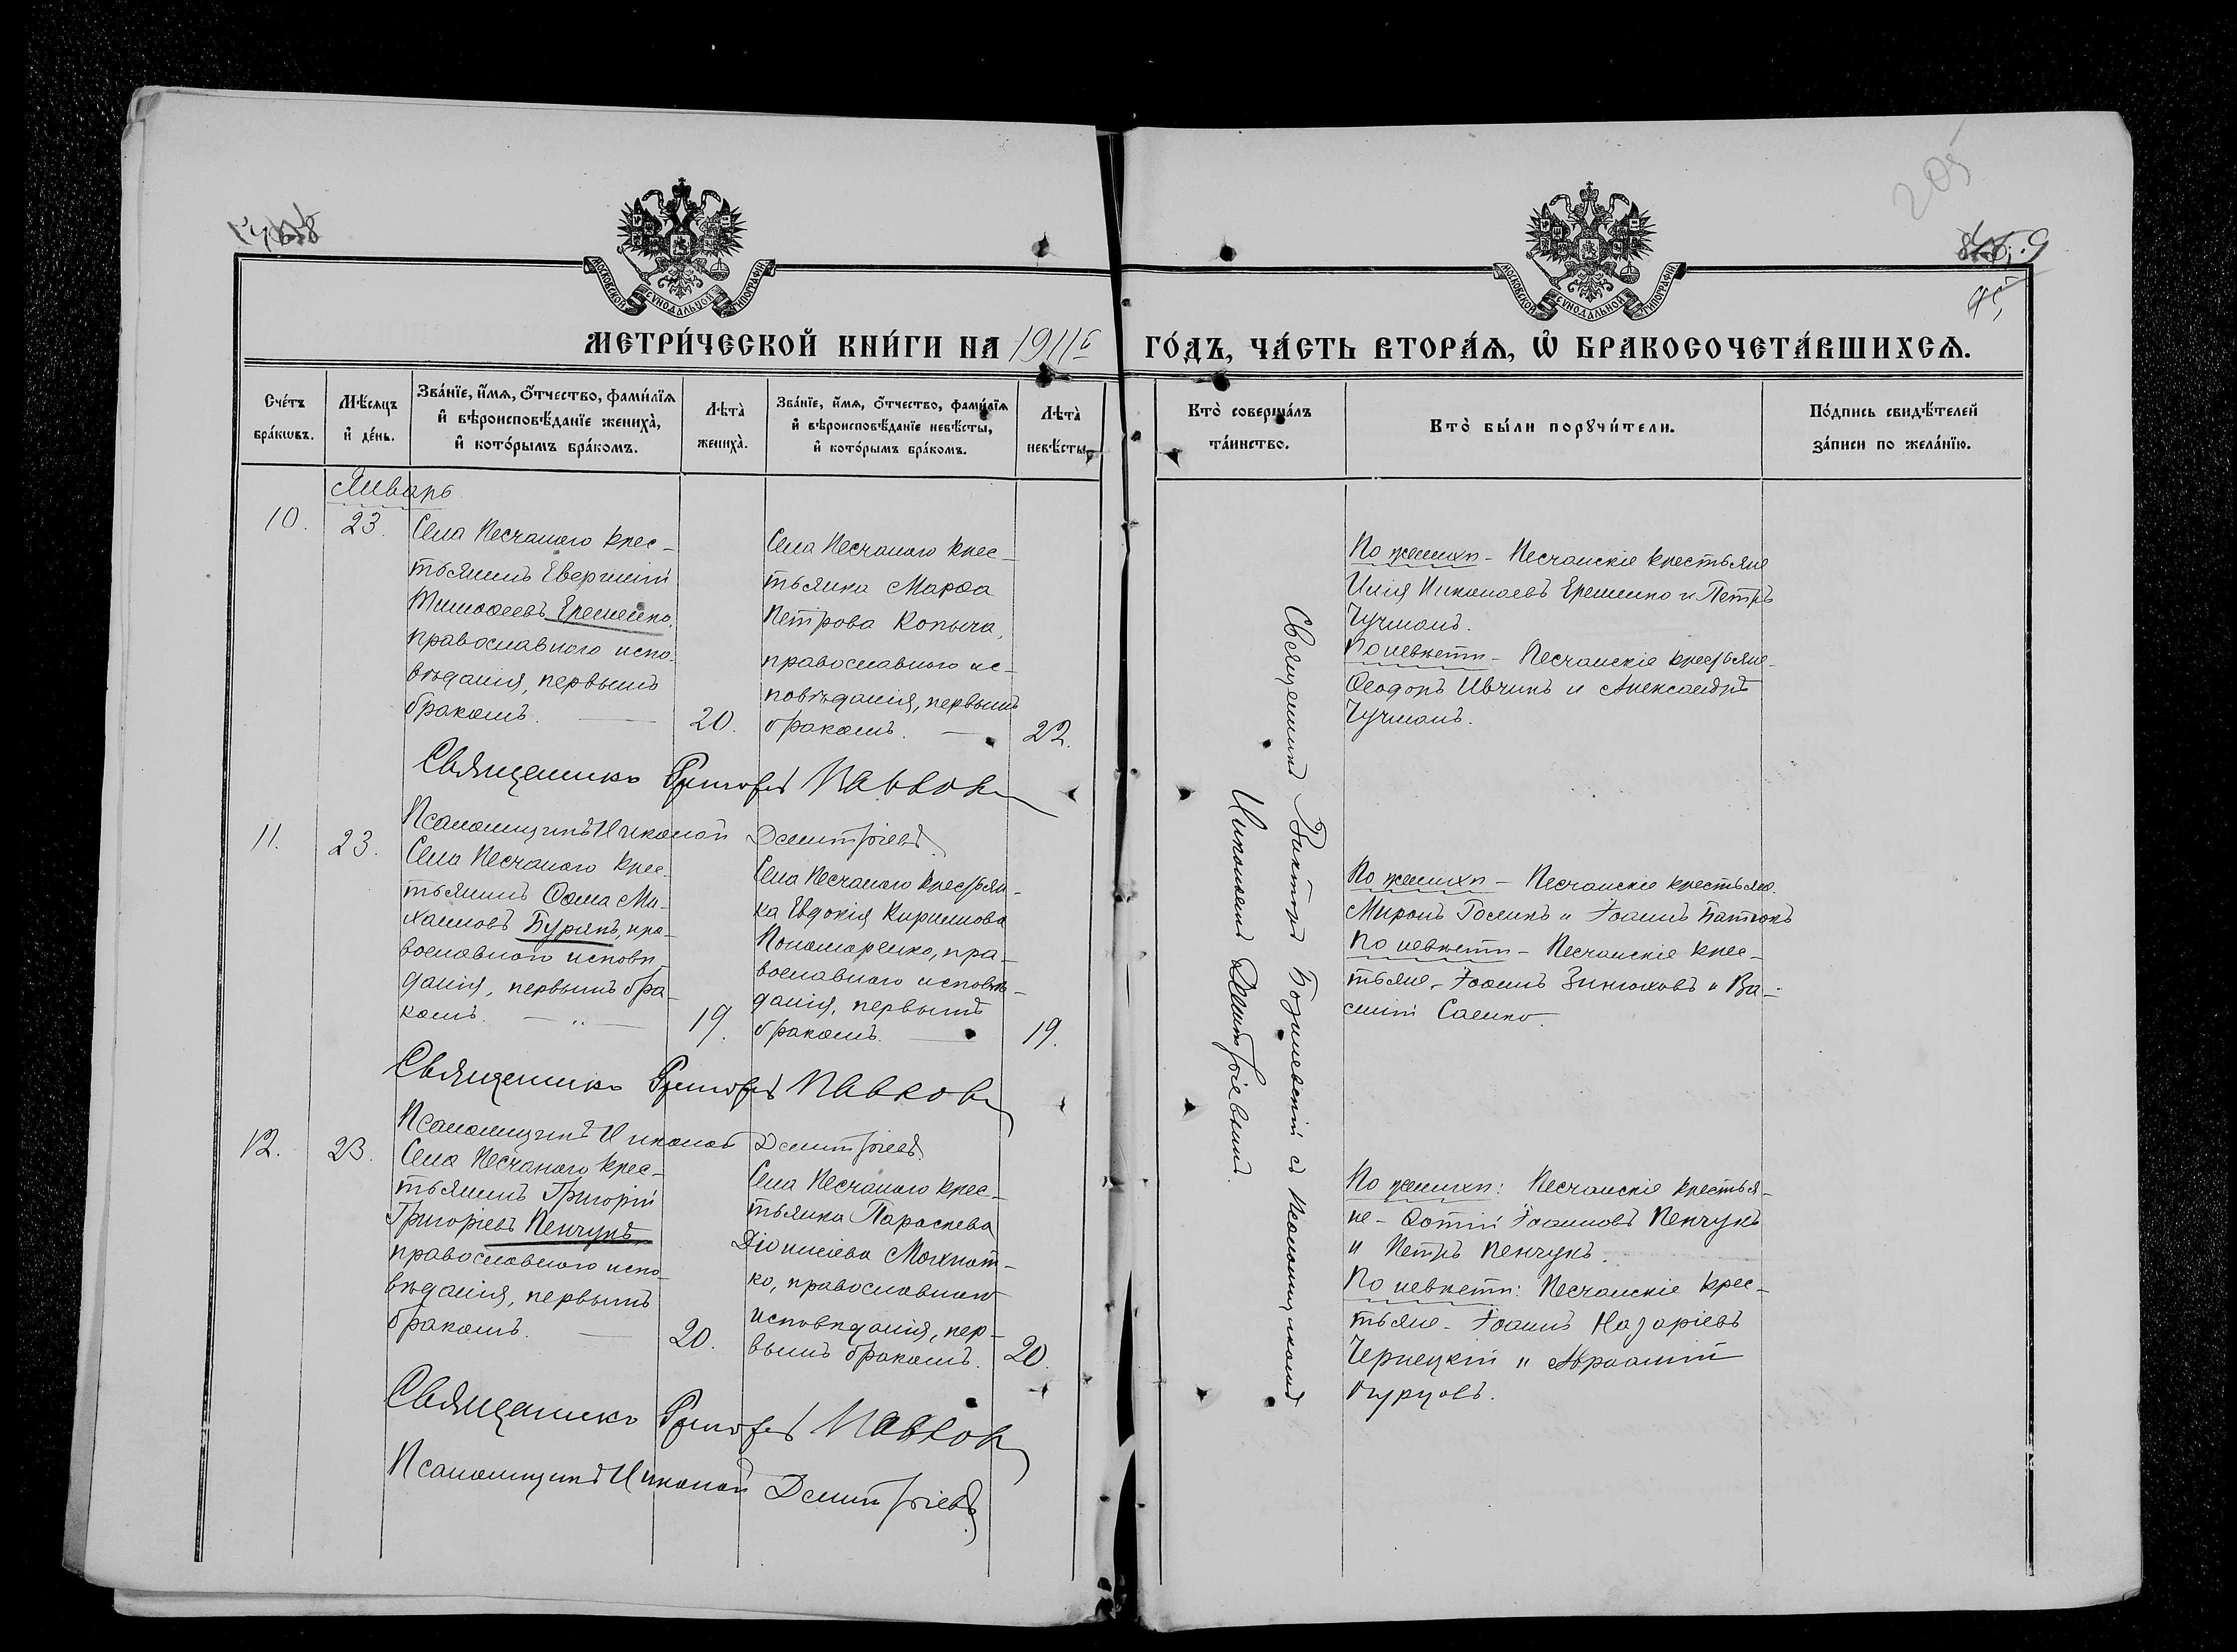 205
МОСКОВСКОЙ СУНОДАЛЬНОЙ ТИПОГРАФІИ
МОСКОВСКОЙ СУНОДАЛЬНОЙ ТИПОГРАФІИ
МЕТРИ́ЧЕСКОЙ КНИ́ГИ НА 1911й ГО́ДЪ, ЧА́СТЬ ВТОРА́Ѧ, Ѡ҆ БРАКОСОЧЕТА́ВШИХСѦ.
Сче́тъ бра́кѡвъ.
Мѣ́сяцъ и҆ де́нь.
Зва́нїе, и҆́мя, о҆́тчество, фами́лїя
и҆ вѣроисповѣ́данїе жениха̀,
и҆ кото́рымъ бра́комъ.
Лѣта̀ жениха̀.
Зва́нїе, и҆́мя, о҆́тчество, фами́лїя
и҆ вѣроисповѣ́данїе невѣ́сты,
и҆ кото́рымъ бра́комъ.
Лѣта̀ невѣ́сты.
Кто̀ соверша́лъ
та́инство.
Кто̀ бы́ли порꙋчи́тели.
По́дпись свидѣ́телей
за́писи по жела́нїю.
Январь
10.
23.
Села Песчаного крес-
тьянинъ Евергній
Тимоѳеевъ Еременко,
православного испо-
вѣданія, первымъ
бракомъ.
20.
Села Песчаного крес-
тьянка Марѳа
Петрова Копыча,
православного ис-
повѣданія, первымъ
бракомъ.
22.
По женихѣ - Песчанскіе крестьяне
Илія Николаевъ Еременко и Петръ
Чучманъ.
По невѣсти - Песчанскіе крестьяне
Ѳеодоръ Ивчикъ и Александръ
Чучманъ.
Священникъ Григорій Павлов
Псаломщикъ Николай Дмитріевъ
11.
23.
Села Песчаного крес-
тьянинъ Ѳома Ми-
хаиловъ Бурякъ, пра-
вославного исповѣ-
данія, первымъ бра-
комъ.
19.
Села Песчаного крестьян-
ка Евдокія Кириллова
Пономаренко, пра-
вославного исповѣ-
данія, первымъ
бракомъ.
19.
По женихѣ - Песчанскіе крестьяне
Миронъ Голикъ и Іоаннъ Батюкъ
По невѣсти - Песчанскіе крес-
тьяне - Іоаннъ Зинюховъ и Ва-
силій Саенко.
Священникъ Григорій Павлов
Псаломщикъ Николай Дмитріевъ
12.
23.
Села Песчаного крес-
тьянинъ Григорій
Григоріевъ Пенчукъ,
православного испо-
вѣданія, первымъ
бракомъ.
20.
Села Песчаного крес-
тьянка Параскева
Діонисіева Мохнат-
ко, православного
исповѣданія, пер-
вымъ бракомъ.
20.
По женихѣ: Песчанскіе крестья-
не - Фотій Іоанновъ Пенчукъ
и Петръ Пенчукъ.
По невѣсти: Песчанскіе крес-
тьяне - Іоаннъ Назаріевъ
Чернецкій и Авраамій
Огурцовъ.
Священникъ Григорій Павлов
Псаломщикъ Николай Дмитріевъ
Священникъ Викторъ съ псаломщикомъ
Николаемъ Дмитріевымъ.